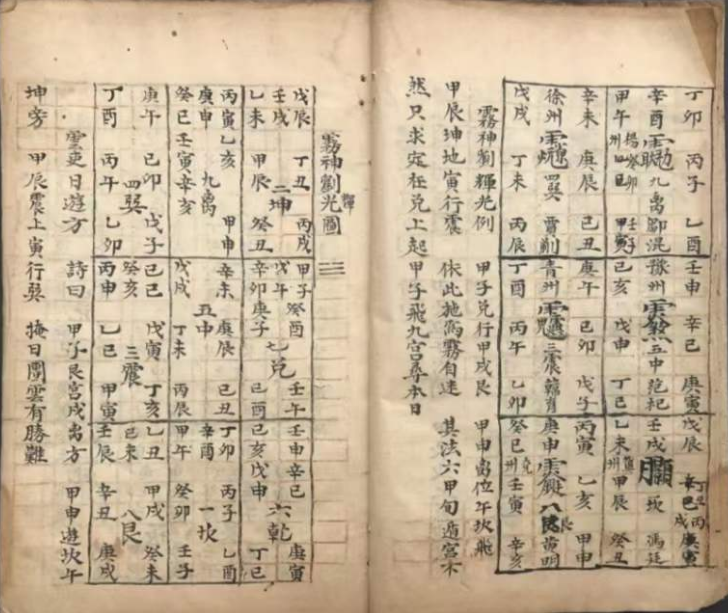 丁卯 丙子 乙酉 壬申 辛巳 庚寅 戊辰 丁丑 丙戌 辛巳 庚寅
辛酉 九离 鄒混 豫州 五中 范祀 壬戌 坎 馮廷
甲午 揚州 癸卯 壬子 己亥 戊申 丁巳 乙未 甲辰 癸丑
辛未 庚辰 己丑 庚午 己卯 戊子 丙寅 乙亥 甲申
徐州 四巽 賈剛 青州 三震 韓育 庚申 八艮 黄明
戊戌 丁未 丙辰 丁酉 丙午 乙卯 癸巳 壬寅 辛亥
霧神劉輝光例 甲子兑行甲戌艮 甲申离位午坎飛
甲辰坤地寅行震 依此施為霧自迷 其法六甲旬遁宫不
然只求定在兑上起甲子飛九宫尋本日
霧神劉輝光圖 三
戊辰 丁丑 丙戌 甲子 癸酉 壬午 壬申 辛巳 庚寅
壬戌 二坤 戊午 七兑 六乾
乙未 甲辰 癸丑 辛卯 庚子 己酉 己亥 戊申 丁巳
丙寅 乙亥 甲申 辛未 庚辰 己丑 丁卯 丙子 乙酉
庚申 九离 五中 辛酉 一坎
癸巳 壬寅 辛亥 戊戌 丁未 丙辰 甲午 癸卯 壬子
庚午 己卯 戊子 己巳 戊寅 丁亥 乙丑 甲戌 癸未
四巽 癸亥 三震 己未 八艮
丁酉 丙午 乙卯 丙申 乙巳 甲寅 壬辰 辛丑 庚戌
雲吏日遊方 詩曰 甲子艮宫戌离方 甲申遊坎午
坤旁 甲辰震上寅行巽 掩日閉雲有勝難